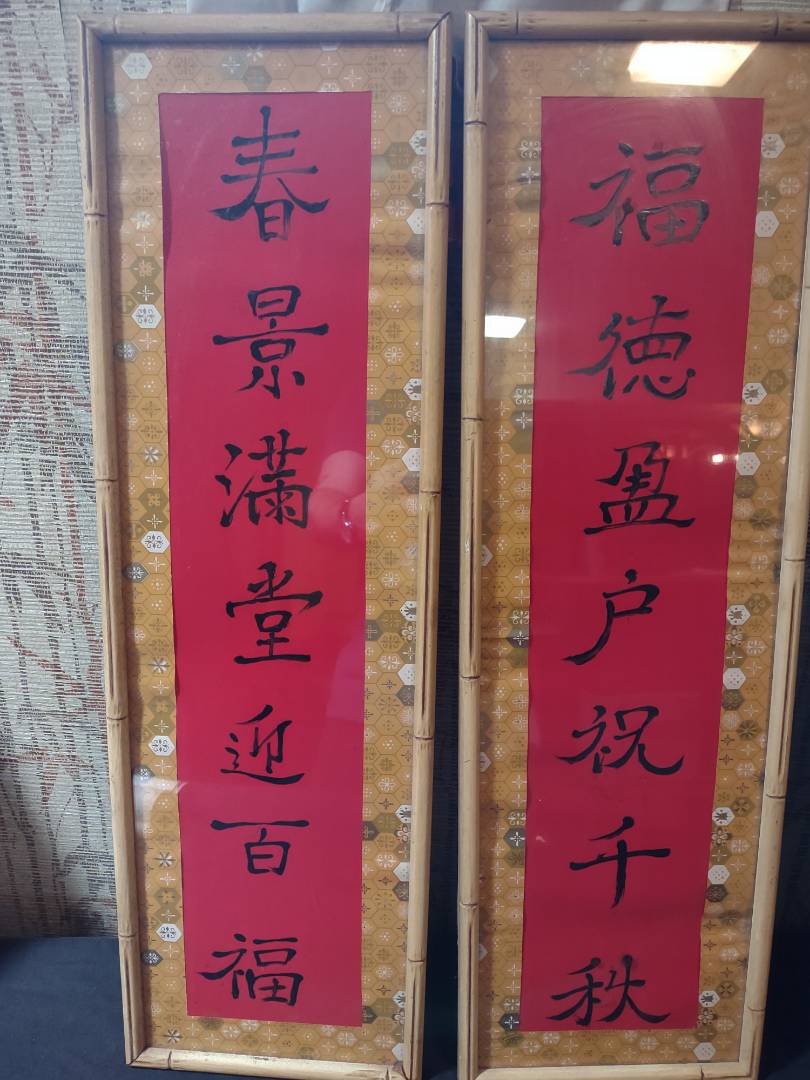 春景滿堂迎百福
福徳盈户祝千秋